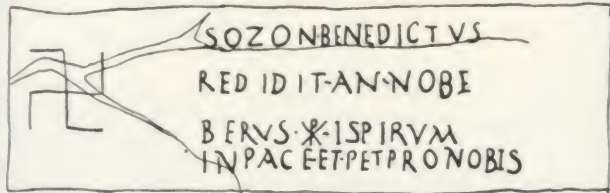 SOZON·BENEDICTVS
REDIDIT·AN·NOBE
BERVS·☧·ISPIRVM
IN PACE·ET·PET PRO NOBIS